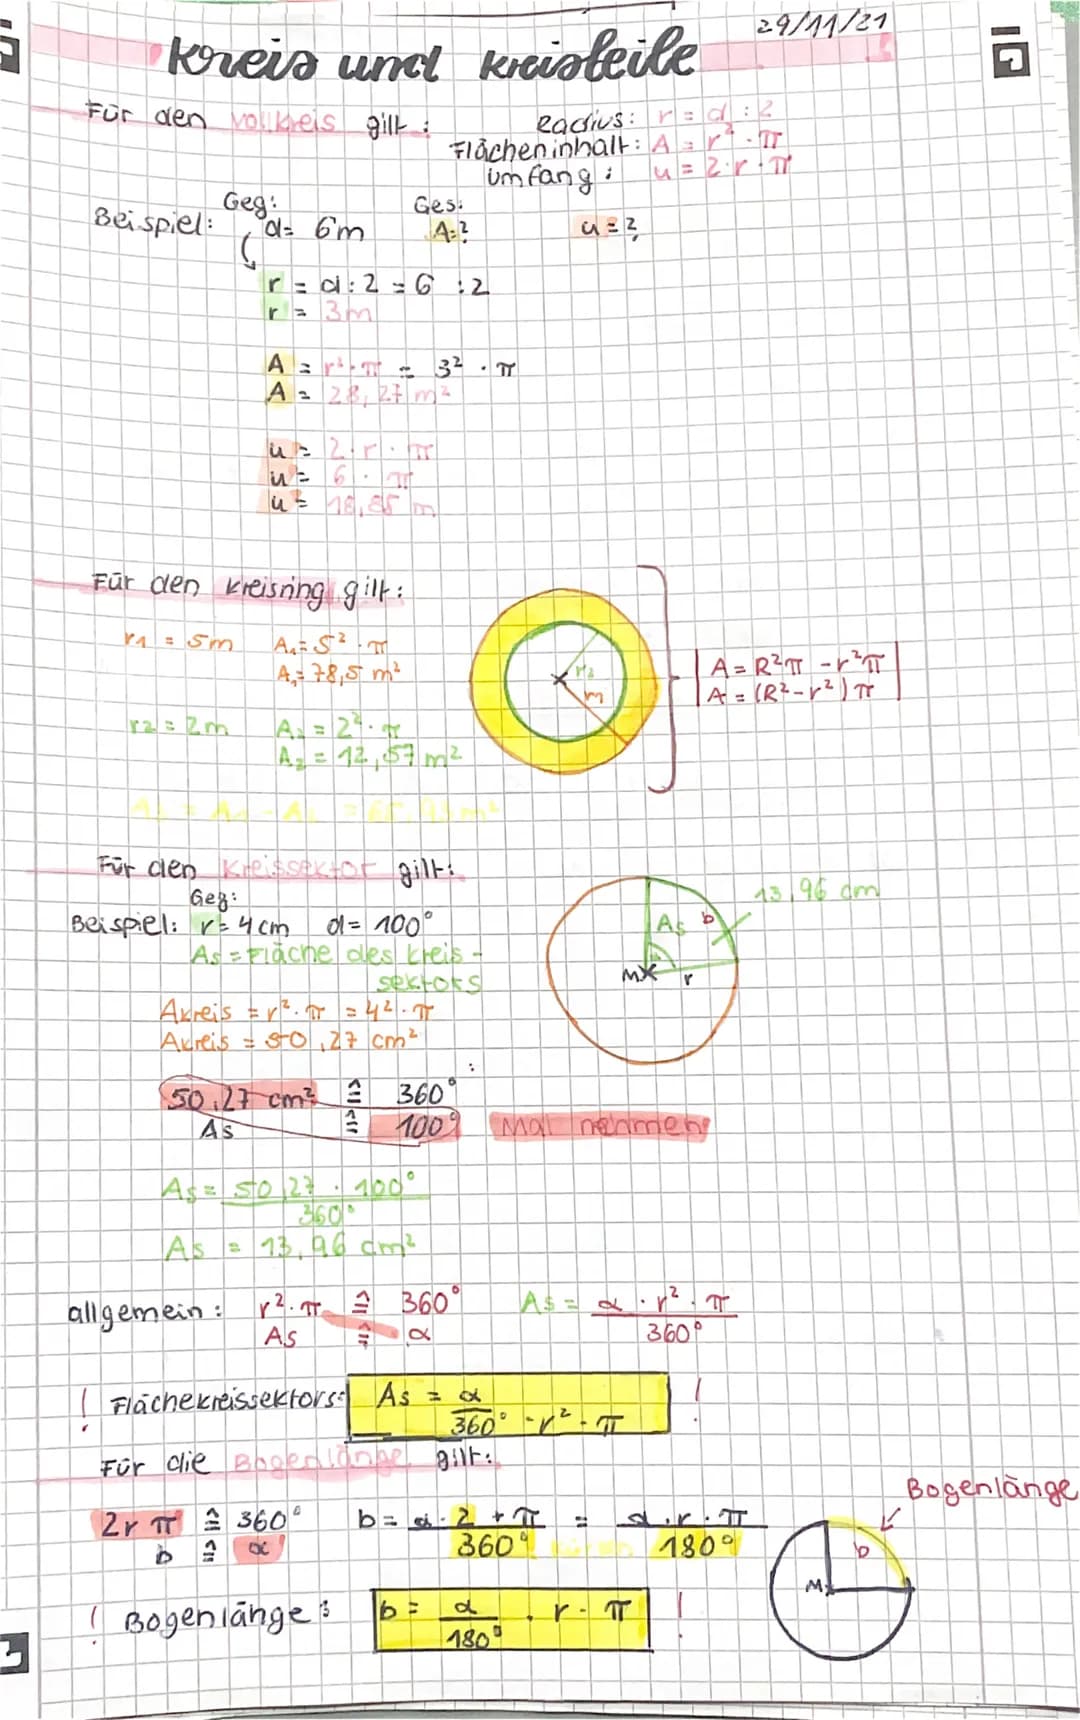 29/11/21
Kreis und Kreisteile
Für den Vollkreis gilt:
Radius: r = d : 2
Flächeninhalt: A = r² · π
Umfang: u = 2·r·π
Beispiel: Geg: d= 6m Ges: A=? u=?
r = d:2 = 6 :2
r = 3m
A = r²·π = 3² · π
A = 28,27 m²
u = 2·r·π
u = 6 · π
u = 18,85 m
Für den Kreisring gilt:
r1 = 5m A₁= 5² · π
A₁= 78,5 m²
r2 = 2m A₂ = 2² · π
A₂ = 12,57 m²
r2
r1
A = R²π - r²π
A = (R²-r²) π
= A₁ - A₂ = 65,93 m²
Für den Kreissektor gilt:
Geg:
Beispiel: r= 4cm d= 100°
As = Fläche des Kreis-
sektors
Akreis = r²·π = 4²·π
Akreis = 50,27 cm²
13,96 cm
As b
M r
50,27 cm² ≙ 360°
As ≙ 100° Mal nehmen
As = 50,27 · 100°
360°
As = 13,96 cm²
allgemein: r²·π ≙ 360° As = α · r² · π
As ≙ α 360°
! Flächekreissektors: As = α !
360° · r² · π
Für die Bogenlänge gilt:
Bogenlänge
2r π ≙ 360° b = α · 2 r π = α · r · π
b ≙ α 360° 180°
b
M
! Bogenlänge: b = α · r · π !
180°